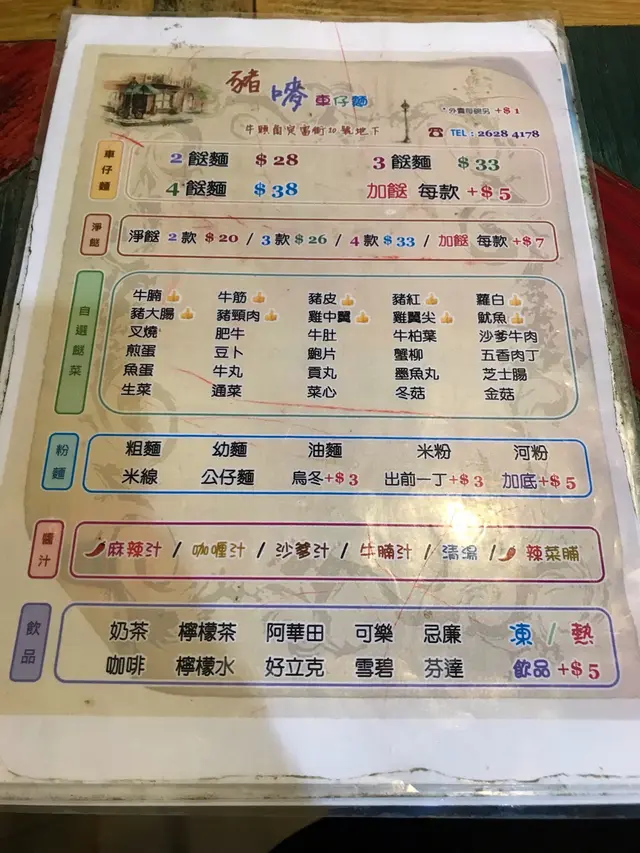 豬嘜 車仔麵
*外賣每個另 +$1
牛頭角定富街10號地下
TEL : 2628 4178
車仔麵
2 餸麵 $28 3 餸麵 $33
4 餸麵 $38 加餸 每款 +$5
淨餸
淨餸 2 款 $20 / 3 款 $26 / 4 款 $33 / 加餸 每款 +$7
自選餸菜
牛腩 牛筋 豬皮 豬紅 蘿白
豬大腸 豬頸肉 雞中翼 雞翼尖 魷魚
叉燒 肥牛 牛肚 牛柏葉 沙爹牛肉
煎蛋 豆卜 鮑片 蟹柳 五香肉丁
魚蛋 牛丸 貢丸 墨魚丸 芝士腸
生菜 通菜 菜心 冬菇 金菇
粉麵
粗麵 幼麵 油麵 米粉 河粉
米線 公仔麵 烏冬+$3 出前一丁+$3 加底+$5
醬汁
麻辣汁 / 咖喱汁 / 沙爹汁 / 牛腩汁 / 清湯 / 辣菜脯
飲品
奶茶 檸檬茶 阿華田 可樂 忌廉 凍 / 熱
咖啡 檸檬水 好立克 雪碧 芬達 飲品 +$5